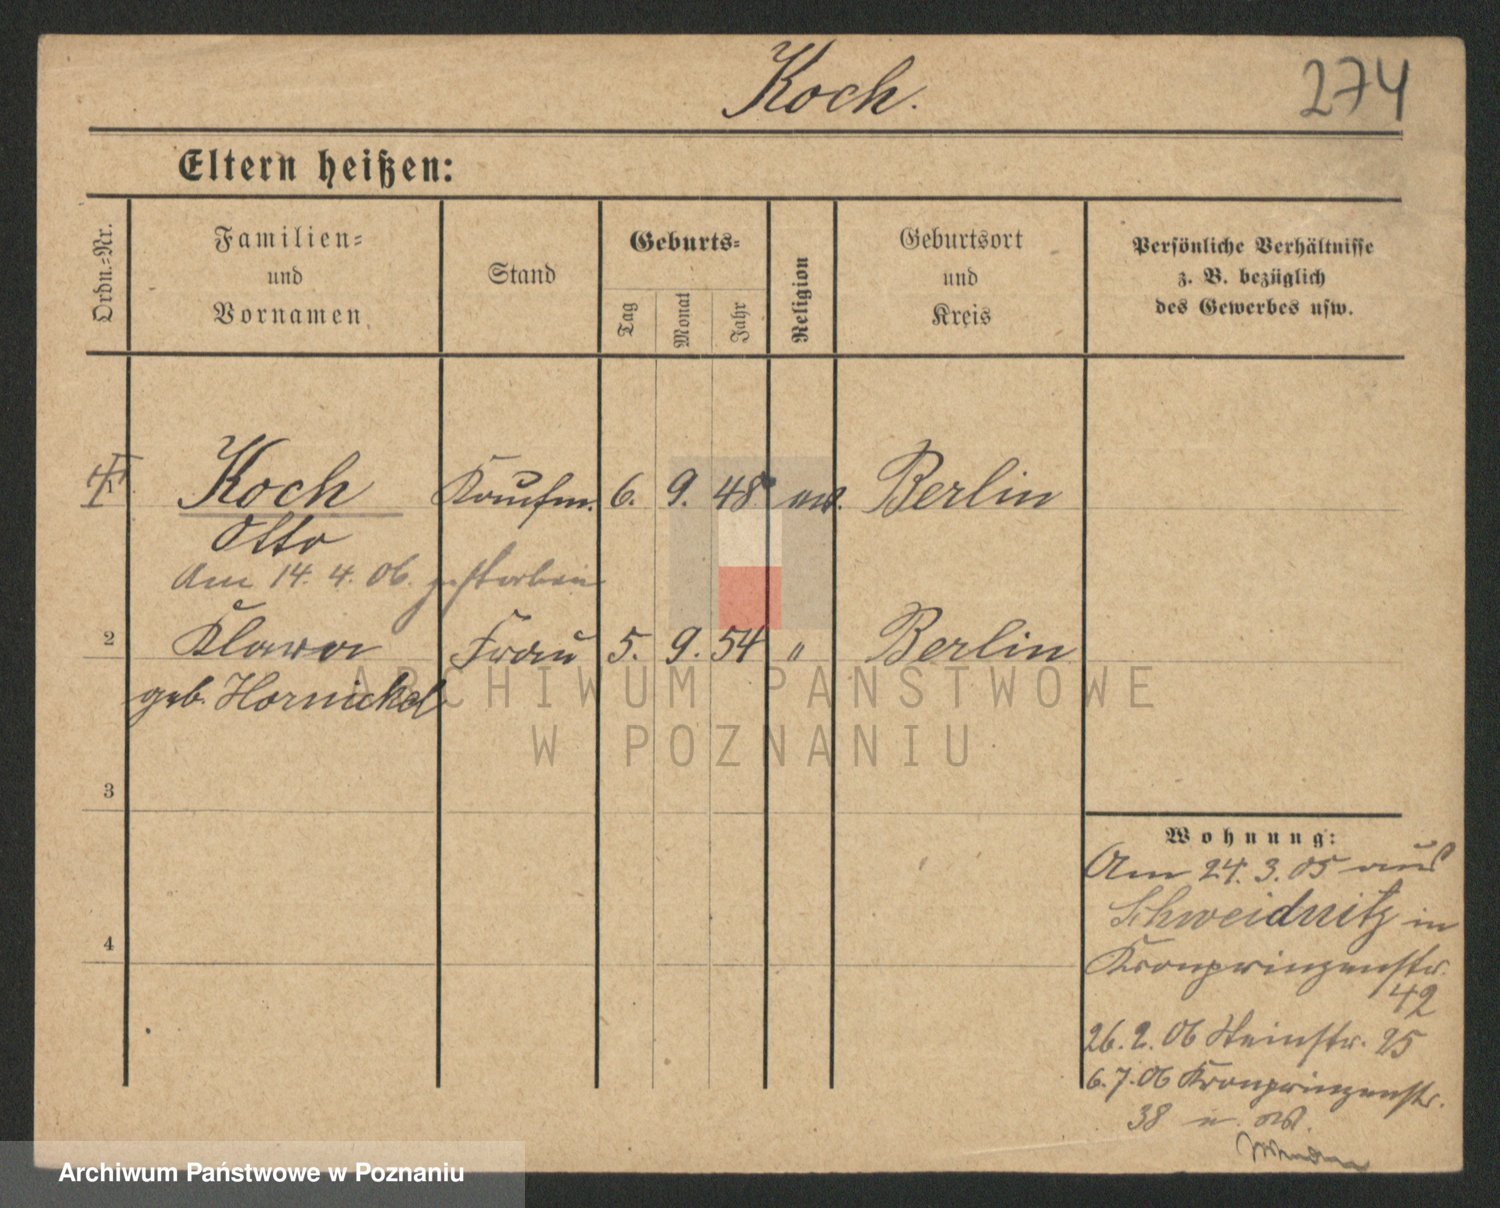 Koch.
274
Eltern heißen:
Ordn.-Nr.
Familien-
und
Vornamen
Stand
Geburts-
Tag
Monat
Jahr
Religion
Geburtsort
und
Kreis
Persönliche Verhältnisse
z. B. bezüglich
des Gewerbes usw.
1 Koch Kaufm. 6. 9. 48 ev. Berlin
Otto
Am 14. 4. 06. gestorben
2 Klara Frau 5. 9. 54 " Berlin
geb. Hornickel
ARCHIWUM PAŃSTWOWE
W POZNANIU
3
4
Wohnung:
Am 24. 3. 05 aus
Schweidnitz in
Kronprinzenstr.
42
26. 2. 06 Steinstr. 25
6. 7. 06 Kronprinzenstr.
38
Archiwum Państwowe w Poznaniu